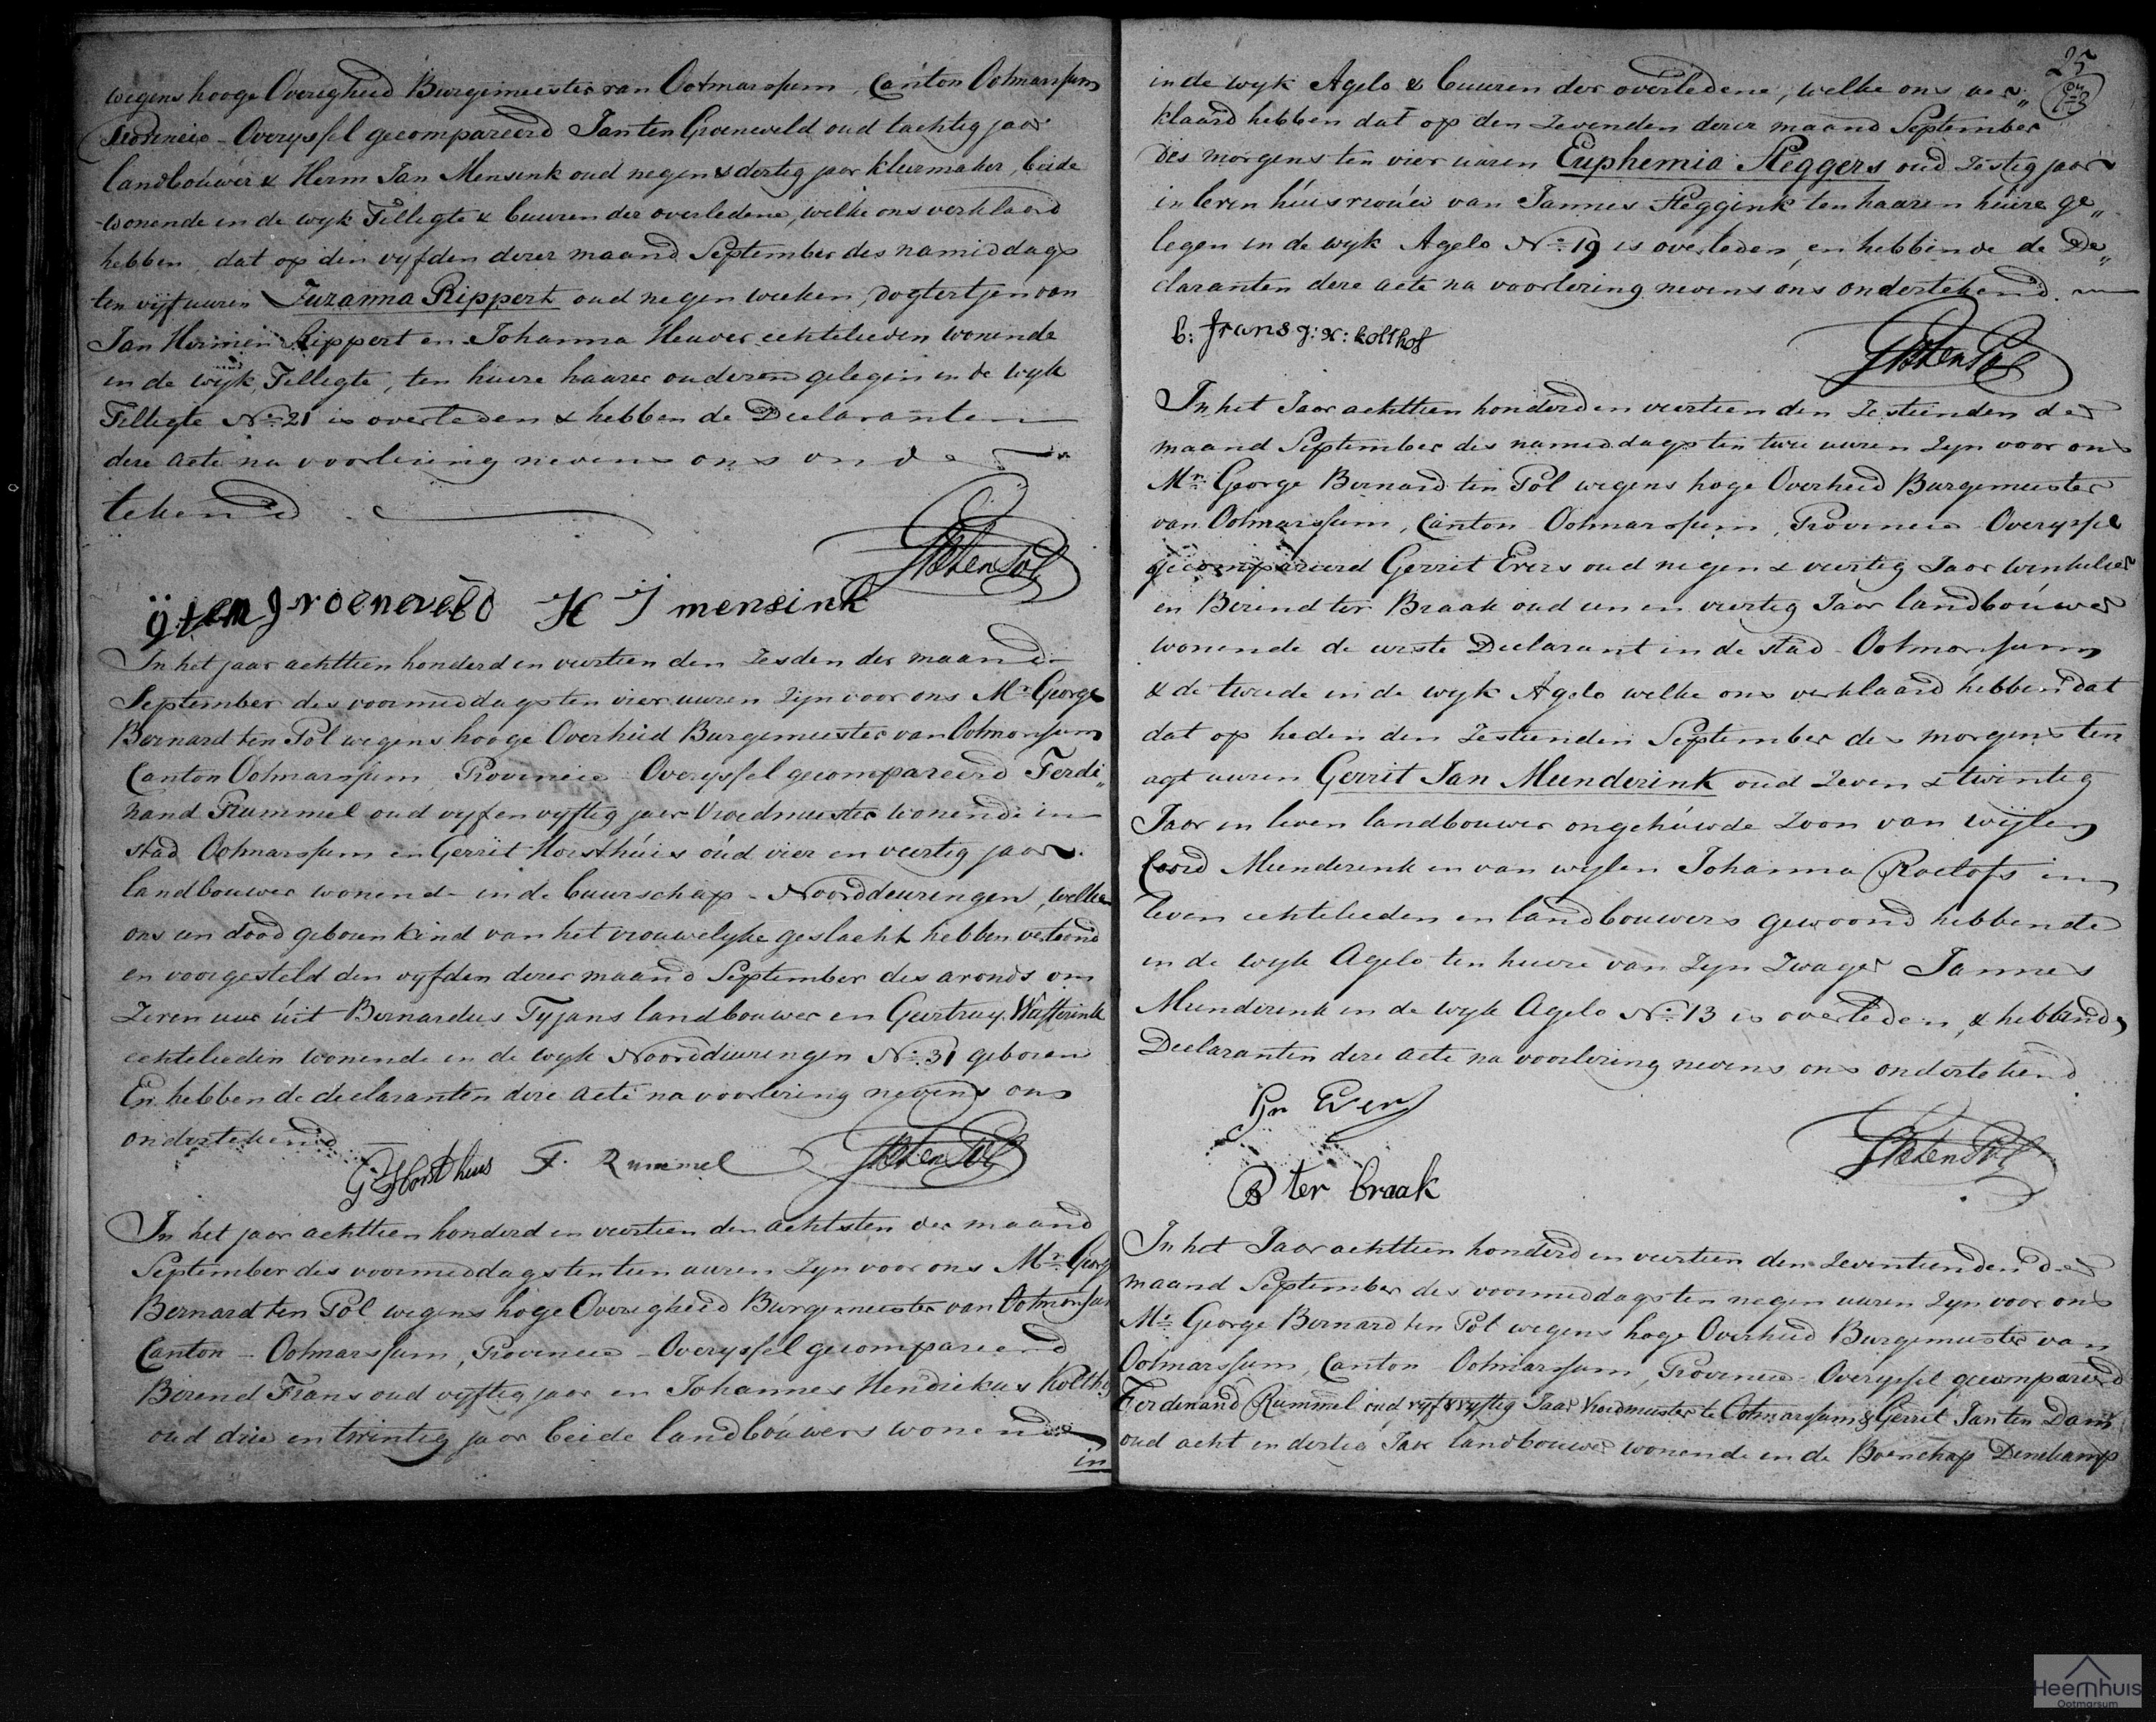 wegens hooge Overigheid Burgemeester van Ootmarssum, Canton Ootmarssum
Provincie - Overyssel gecompareerd Jan ten Groeneveld oud tachtig jaar
landbouwer & Herm Jan Mensink oud negen & dertig jaar kleermaker, beide
wonende in de wyk Tilligte & buuren der overledene, welke ons verklaard
hebben dat op den vyfden dezer maand September des namiddags
ten vijf uuren Zuzanna Rippert oud negen weeken, dogtertjen van
Jan Hermen Rippert en Johanna Heuver echtelieden wonende
in de wijk Tilligte, ten huize haarer ouderen gelegen in de wyk
Tilligte No. 21 is overleden & hebben de Declaranten
deze acte na voorlezing nevens ons onder
tekend
GBtenPol
G ten Groeneveld H J mensink
In het jaar achttien honderd en veertien den zesden der maand
September des voormiddags ten vier uuren zyn voor ons Mr. George
Bernard ten Pol wegens hooge Overheid Burgemeester van Ootmarssum
Canton Ootmarssum, Provincie Overyssel gecompareerd Ferdi„
nand Rummel oud vyf en vyftig jaar Vroedmeester wonende in
stad Ootmarssum en Gerrit Horsthúis oúd vier en veertig jaar
landbouwer wonend in de buurschap - Noorddeuringen, welke
ons een dood geboren kind van het vrouwelyke geslacht hebben vertoond
en voorgesteld den vyfden dezer maand September des avonds om
Zeven uur úit Bernardus Tyjans landbouwer en Geertruy
echtelieden wonende in de wyk Noorddeuringen No. 31 geboren
En hebben de declaranten deze acte na voorlezing nevens ons
ondertekend
G Horsthuis F. Rummel GBtenPol
In het jaar achttien honderd en veertien den achtsten der maand
September des voormiddags ten tien uuren zyn voor ons Mr. Georg
Bernard ten Pol wegens hoge Overigheid Burgemeester van Ootmarssum
Canton - Ootmarssum, Provincie - Overyssel gecompareerd
Berend Frans oud vyftig jaar en Johannes Hendrikus Kolthof
oud drie en twintig jaar beide landbóúwers wonende
in
25
in de wyk Agelo & buuren der overledene, welke ons ver„
klaard hebben dat op den zevenden dezer maand September
des morgens ten vier uuren Euphemia Steggers oud zestig jaar
in leven húisvrouw van Jannes Steggink ten haaren húize ge„
legen in de wyk Agelo No. 19 is overleden, en hebben de De„
claranten deze acte na voorlezing nevens ons ondertekend.
b: frans j: H: kolthof
GBtenPol
In het Jaar achttien honderd en veertien den zestienden der
maand September des namiddags ten twee uuren zyn voor ons
Mr. George Bernard ten Pol wegens hoge Overheid Burgemeester
van Ootmarssum, Canton Ootmarssum, Provincie Overyssel
gecompareerd Gerrit Evers oud negen & veertig Jaar winkelier
en Berend ter Braak oud een en veertig Jaar landbóúwer
wonende de eerste Declarant in de stad Ootmarssum
& de tweede in de wyk Agelo welke ons verklaard hebben dat
dat op heden den zestienden September des morgens ten
agt uuren Gerrit Jan Meenderink oud zeven & twintig
Jaar in leven landbouwer ongehúwde zoon van wijlen
Coord Meenderink en van wylen Johanna Roelofs in
leven echtelieden en landbouwers gewoond hebbende
in de wyk Agelo ten huize van zyn zwager Jannes
Meenderink in de wyk Agelo No. 13 is overleden, & hebben de
Declaranten deze acte na voorlezing nevens ons ondertekend
Gr Evers
GBtenPol
B ter braak
In het Jaar achttien honderd en veertien den zeventienden der
maand September des voormiddags ten negen uuren zyn voor ons
Mr. George Bernard ten Pol wegens hoge Overheid Burgemeester van
Ootmarssum, Canton - Ootmarssum, Provincie Overyssel gecompareerd
Ferdinand Rummel oud vyf & vyftig Jaar Vroedmeester te Ootmarssum & Gerrit Jan ten Dam
oud acht en dertig Jaar landbouwer wonende in de Boerschap Denekamp
Heemhuis
Ootmarsum